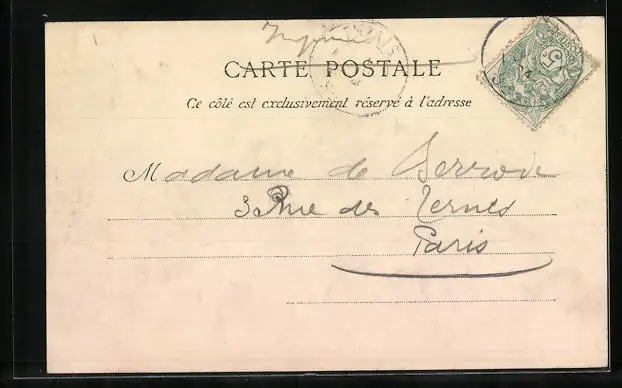 Imprimé
CARTE POSTALE
Ce côté est exclusivement réservé à l'adresse
Madame de
3 Rue des Ternes
Paris